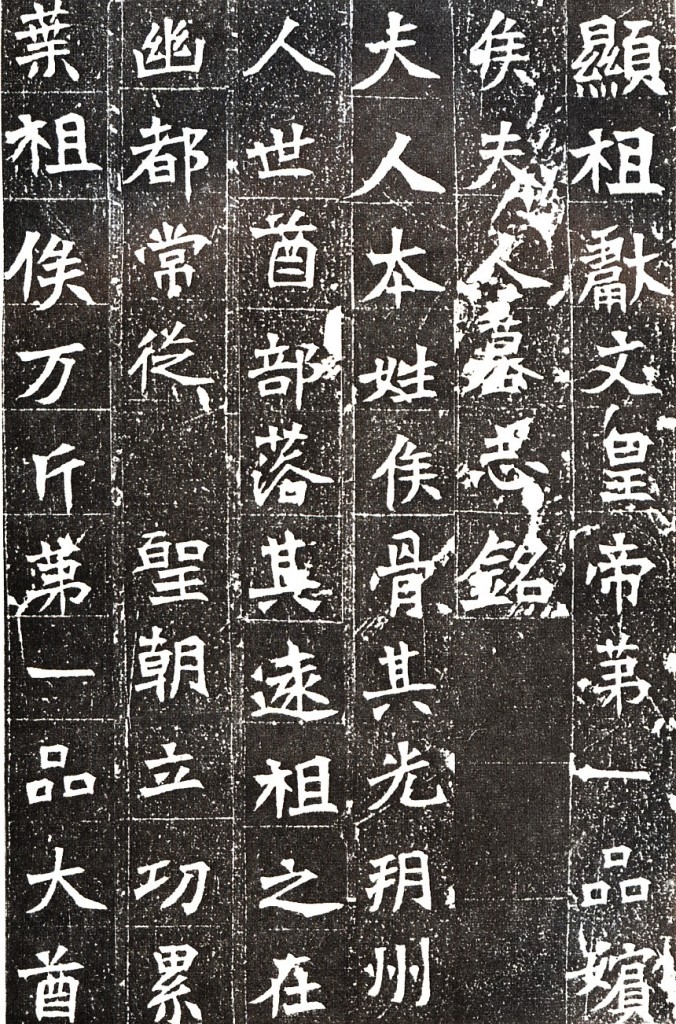 顯祖獻文皇帝苐一品嬪
侯夫人墓志銘
夫人本姓侯骨其先玥州
人世酋部落其遠祖之在
幽都常從聖朝立功累
葉祖俟万斤苐一品大酋